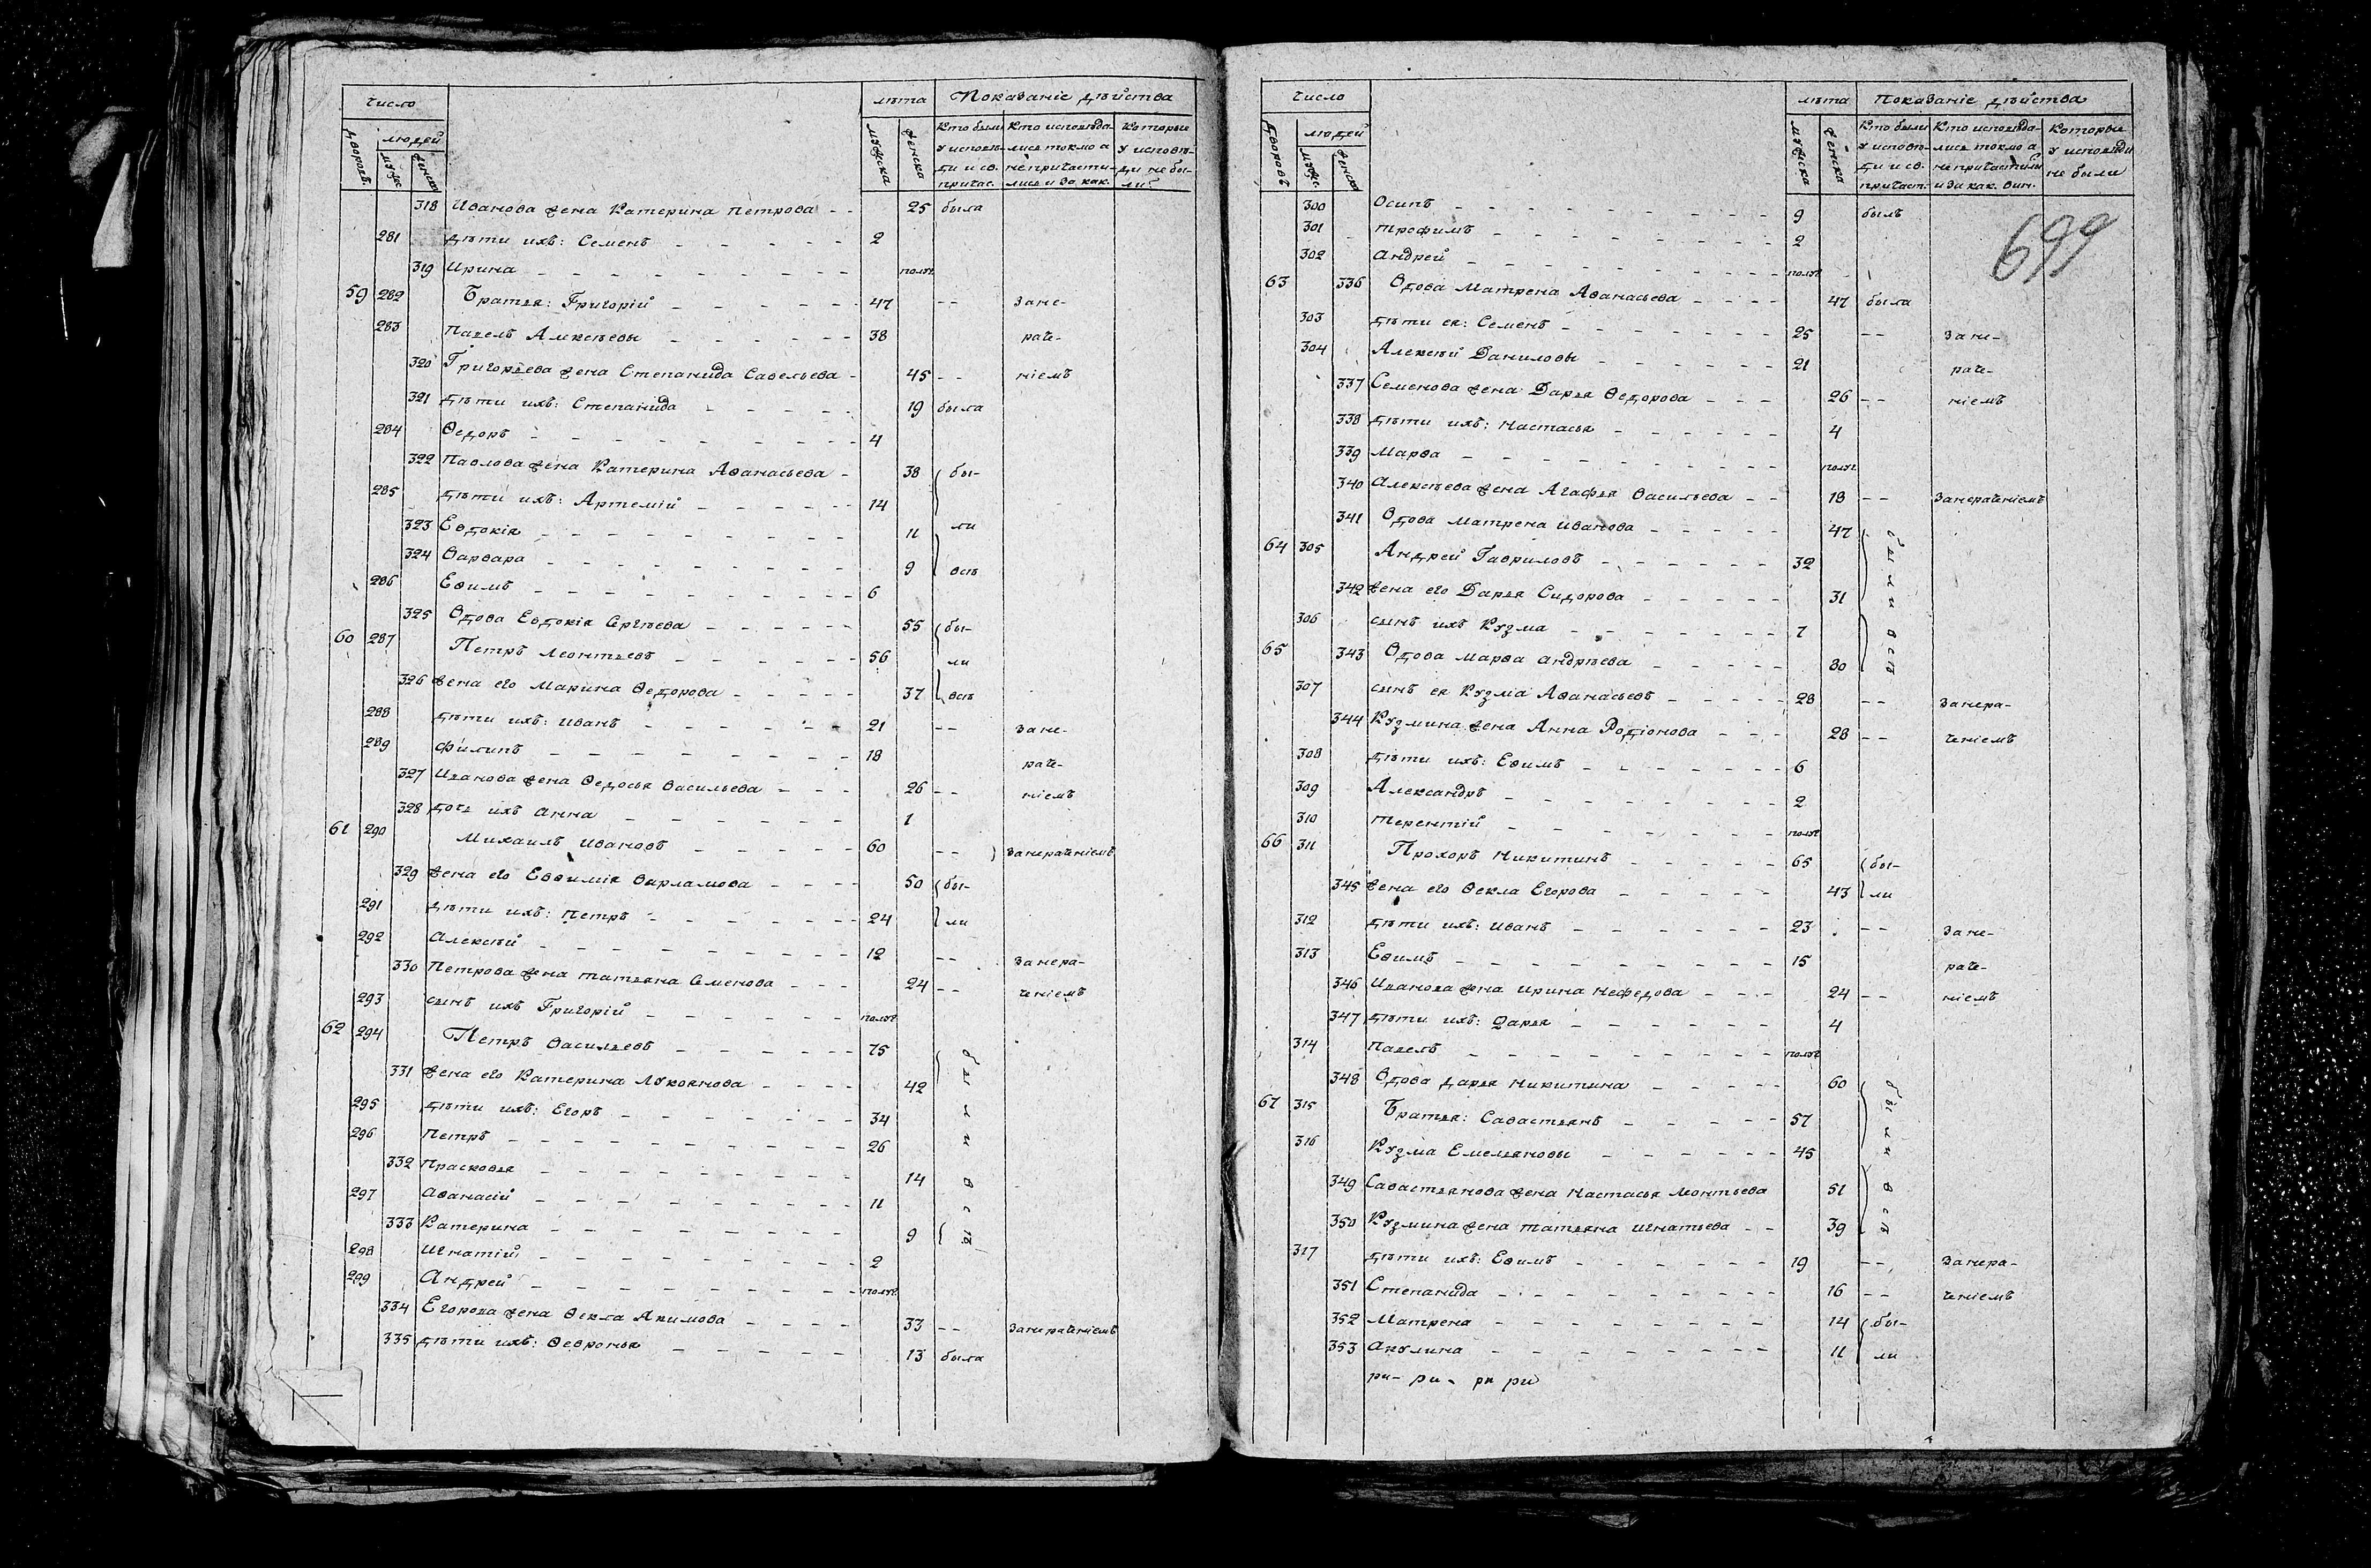 Число лѣта Показаніе дѣйства
дворовъ. людей мужска женска Кто были у исповѣди и св. причас. Кто исповѣдались токмо а не причастились и за как. Которые у исповѣди не были
мужс женска
318 Иванова жена Катерина Петрова 25 была
281 дѣти ихъ: Семенъ 2
319 Ирина полуг.
59 282 Братья: Григорій 47 зане-
283 Павелъ Алексѣевы 38 раче-
320 Григорьева жена Степанида Савельева 45 ніемъ
321 дѣти ихъ: Степанида 19 была
284 Ѳедоръ 4
322 Павлова жена Катерина Аѳанасьева 38 бы-
285 дѣти ихъ: Артемій 14
323 Евдокія 11 ли
324 Варвара 9 всѣ
286 Еѳимъ 6
325 Вдова Евдокія Сергѣева 55 бы-
60 287 Петръ Леонтьевъ 56 ли
326 жена его Марина Ѳедорова 37 всѣ
288 дѣти ихъ: Иванъ 21 зане-
289 Филипъ 18 раче-
327 Иванова жена Ѳедосья Васильева 26 ніемъ
328 дочь ихъ Анна 1
61 290 Михаилъ Ивановъ 60 занераченіемъ
329 жена его Евѳимія Варламова 50 бы-
291 дѣти ихъ: Петръ 24 ли
292 Алексѣй 12 занера-
330 Петрова жена Татьяна Семенова 24 ченіемъ
293 сынъ ихъ Григорій полуг.
62 294 Петръ Васильевъ 75 были всѣ
331 жена его Катерина Лукоянова 42
295 дѣти ихъ: Егоръ 34
296 Петръ 26
332 Прасковья 14
297 Аѳанасій 11
333 Катерина 9
298 Игнатій 2
299 Андрей полуг.
334 Егорова жена Ѳекла Акимова 33 занераченіемъ
335 дѣти ихъ: Ѳевронья 13 была
Число лѣта Показаніе дѣйства
дворовъ людей мужска женска Кто были у исповѣди и св. причаст. Кто исповѣдались токмо а не причастились и за как. вин. Которые у исповѣди не были
мужс. женска
300 Осипъ 9 былъ
699
301 Трофимъ 2
302 Андрей полуг.
63 336 Вдова Матрена Аѳанасьева 47 была
303 дѣти ея: Семенъ 25 зане-
304 Алексѣй Даниловы 21 раче-
337 Семенова жена Дарья Ѳедорова 26 ніемъ
338 дѣти ихъ: Настасья 4
339 Марѳа полуг.
340 Алексѣева жена Агафья Васильева 18 занераченіемъ
341 Вдова Матрена Иванова 47 были всѣ
64 305 Андрей Гавриловъ 32
342 жена его Дарья Сидорова 31
306 сынъ ихъ Кузма 7
65 343 Вдова Марѳа Андрѣева 80
307 сынъ ея Кузма Аѳанасьевъ 28 занера-
344 Кузмина жена Анна Родіонова 28 ченіемъ
308 дѣти ихъ: Еѳимъ 6
309 Александръ 2
310 Терентій полуг.
66 311 Прохоръ Никитинъ 65 бы-
345 жена его Ѳекла Егорова 43 ли
312 дѣти ихъ: Иванъ 23 зане-
313 Еѳимъ 15 раче-
346 Иванова жена Ирина Нефедова 24 ніемъ
347 дѣти ихъ: Дарья 4
314 Павелъ полуг.
348 Вдова Дарья Никитина 60 были всѣ
67 315 Братья: Савастьянъ 57
316 Кузма Емельяновы 45
349 Савастьянова жена Настасья Леонтьева 51
350 Кузмина жена Татьяна Игнатьева 39
317 дѣти ихъ: Еѳимъ 19 занера-
351 Степанида 16 ченіемъ
352 Матрена 14 бы-
353 Акулина 11 ли